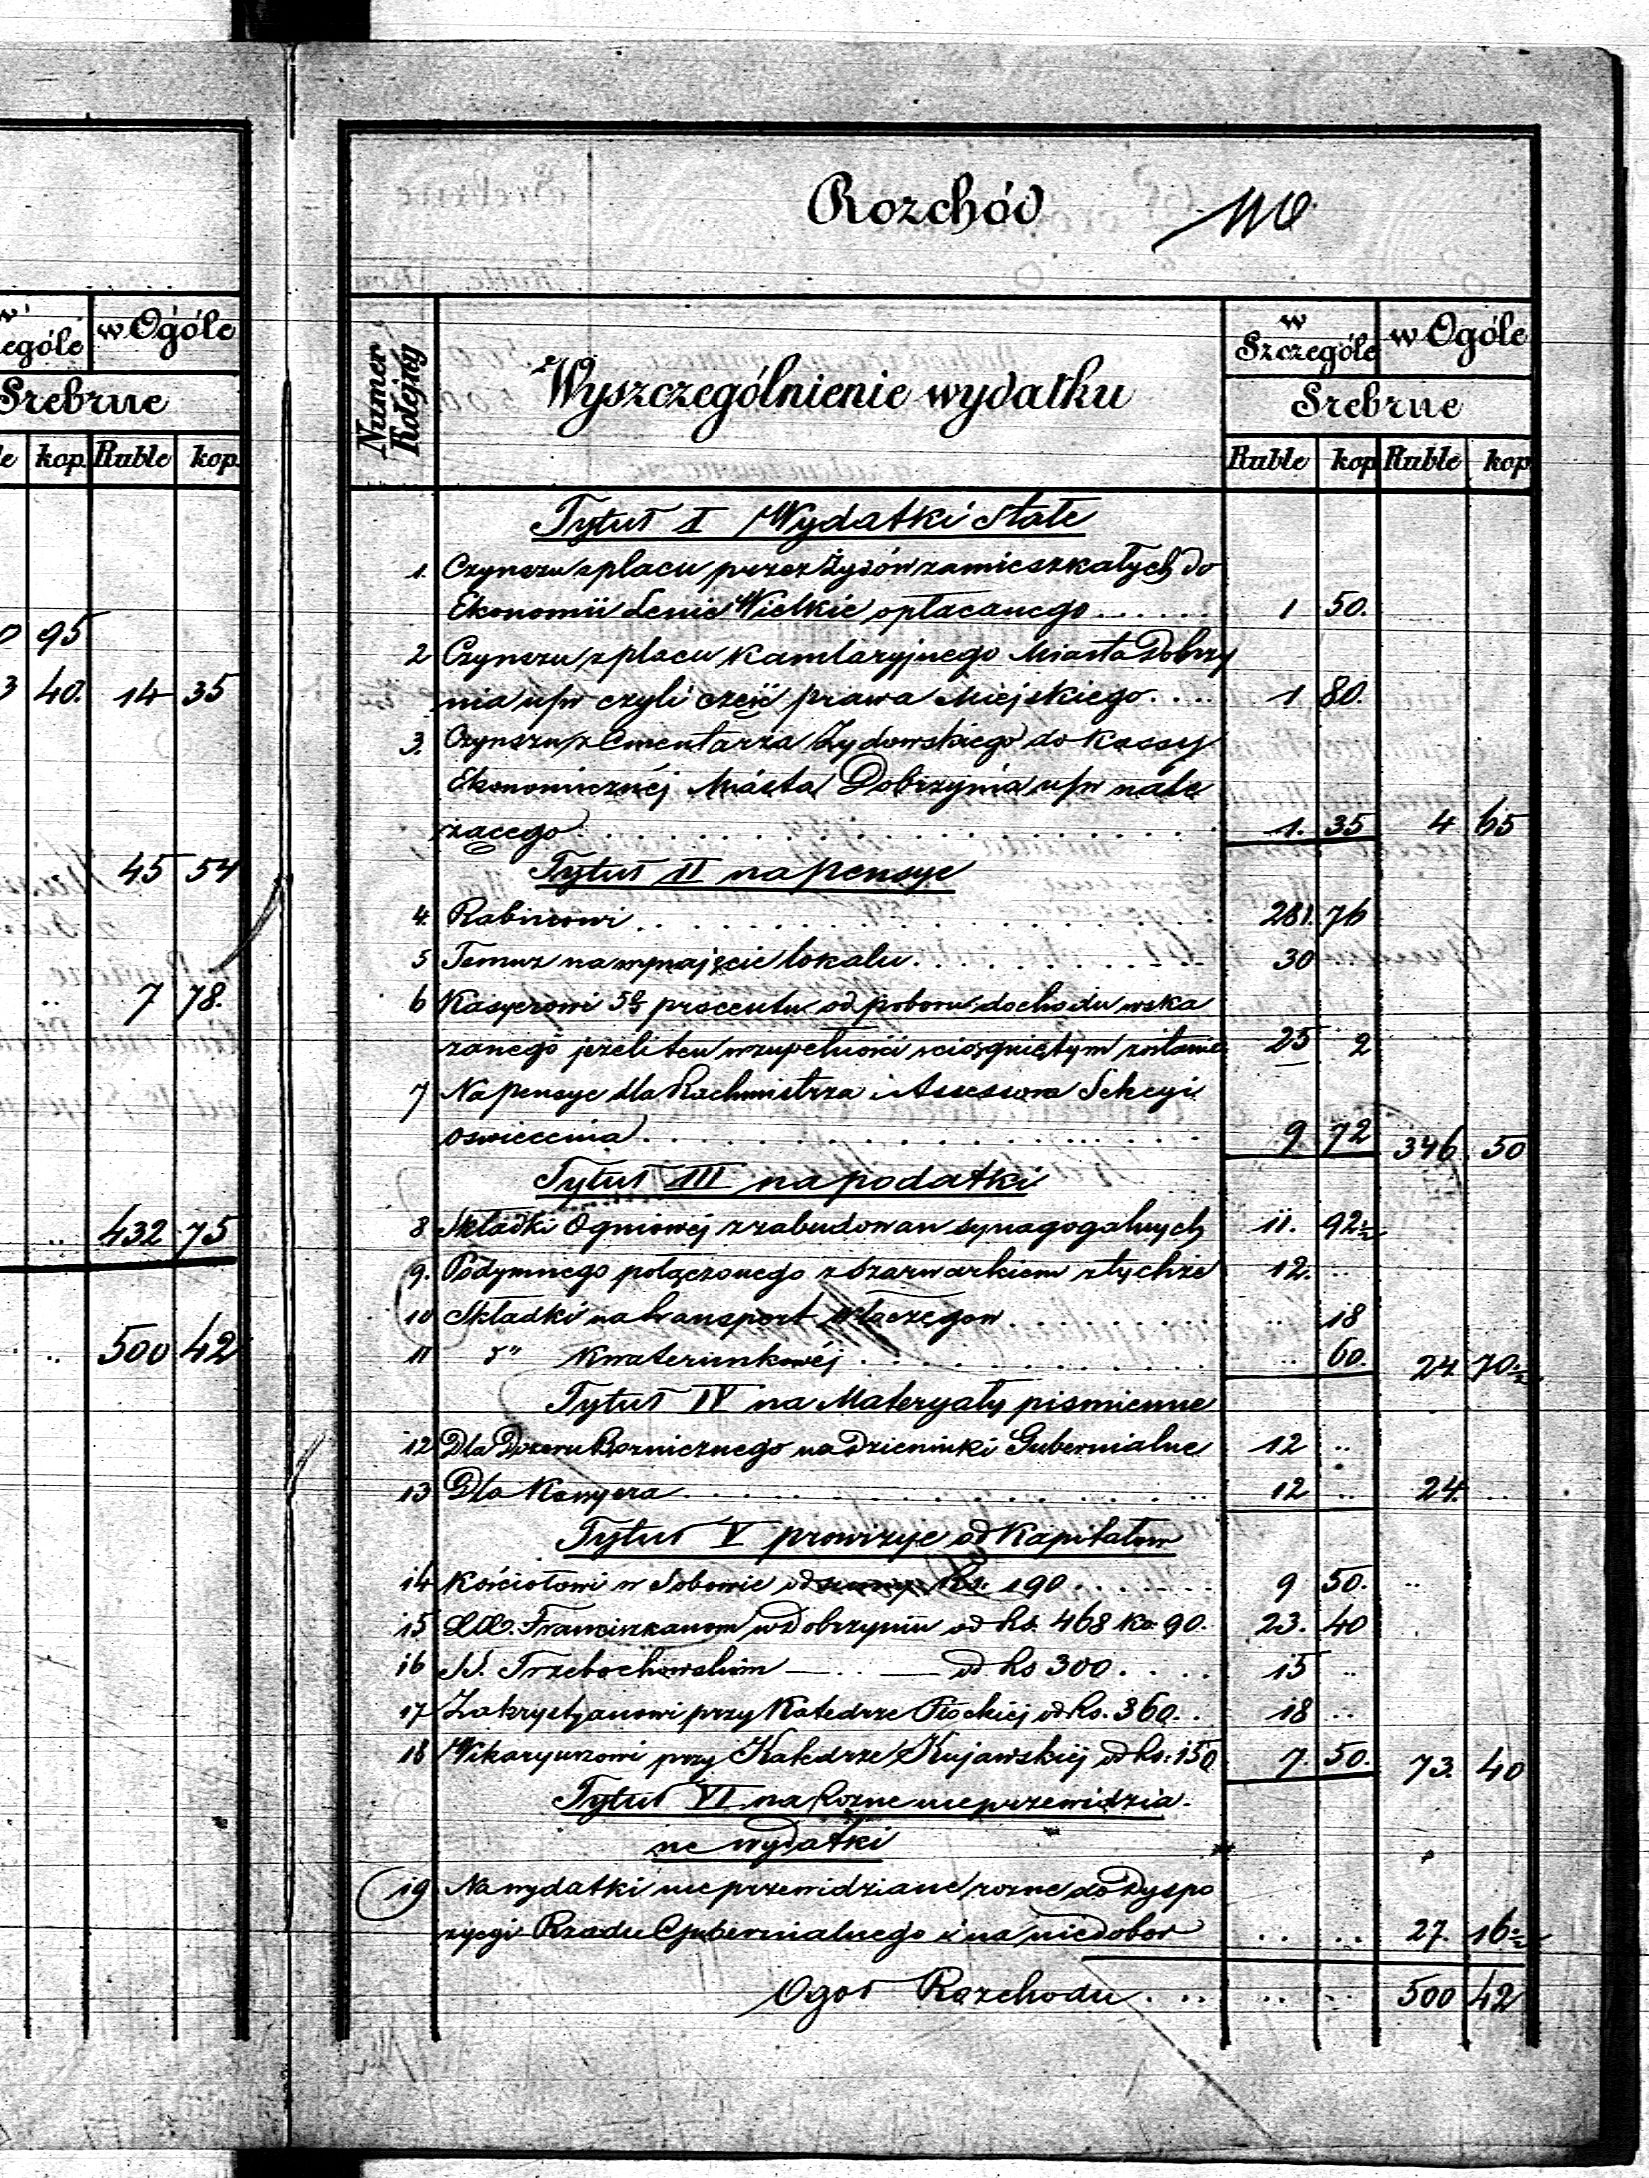 w Ogóle
Srebrne
kop. Ruble kop.
95
40. 14 35
45 54
.. 7 78.
.. 432 75
.. 500 42
Rozchód 116
Numer Kolejny
Wyszczególnienie wydatku
w Szczególe
w Ogóle
Srebrne
Ruble kop Ruble kop
Tytuł I Wydatki Stałe
1. Czynszu z placu przez Żydów zamieszkałych do
Ekonomii Lenie Wielkie opłacanego . . . . . . 1 50.
2 Czynszu z placu Kamlaryjnego Miasta Dobrzy
nia n/w czyli część prawa Miejskiego . . . . 1 80.
3. Czynszu z Cmentarza Żydowskiego do Kassy
Ekonomicznéj Miasta Dobrzynia n/w nale
żącego . . . . . . 1. 35 4 65
Tytuł II na pensye
4. Rabinowi . . . . . . 281. 76
5 Temuż na wynajęcie lokalu . . . . . . 30 ..
6 Kasyerowi 5% procentu od poboru dochodu wska
zanego jeżeli ten w zupełności ściągniętym zostanie 25 2
7 Na pensye dla Rachmistrza i Assessora Sekcyi
oswiecenia . . . . . . 9 72 346 50
Tytuł III na podatki
8 Składki Ogniowéj z zabudowan synagogalnych 11. 92½
9. Podymnego połączonego z Szarwarkiem z tychże 12. ..
10 Składki na transport Włóczęgow . . . . . . .. 18
11 d° Kwaterunkowéj . . . . . . .. 60. 24 70½
Tytuł IV na Materyały pismienne
12 Dla Dozoru Boznicznego na Dzienniki Gubernialne 12 ..
13 Dla Kassyera . . . . . . 12 .. 24. ..
Tytuł V prowizye od Kapitałow
14 Kościołowi w Sobowie od summy Rs. 190 . . . . . . 9 50. ..
15 XX. Franciszkanom w Dobrzyniu od Rs. 468 ko 90. 23. 40
16 Trzebochowskim — . . — od Rs 300 . . . . 15 ..
17 Zakrystyanowi przy Katedrze Płockiéj od Rs. 360. . 18 ..
18 Wikaryuszowi przy Katedrze Kujawskiéj od Rs: 150 7. 50. 73. 40
Tytuł VI na Rozne nieprzewidzia-
ne wydatki
19 Na wydatki nieprzewidziane rozne do Dyspo
zycyi Rządu Gubernialnego i na niedobor .. .. 27. 16½
Ogoł Rozchodu . . . .. .. 500 42